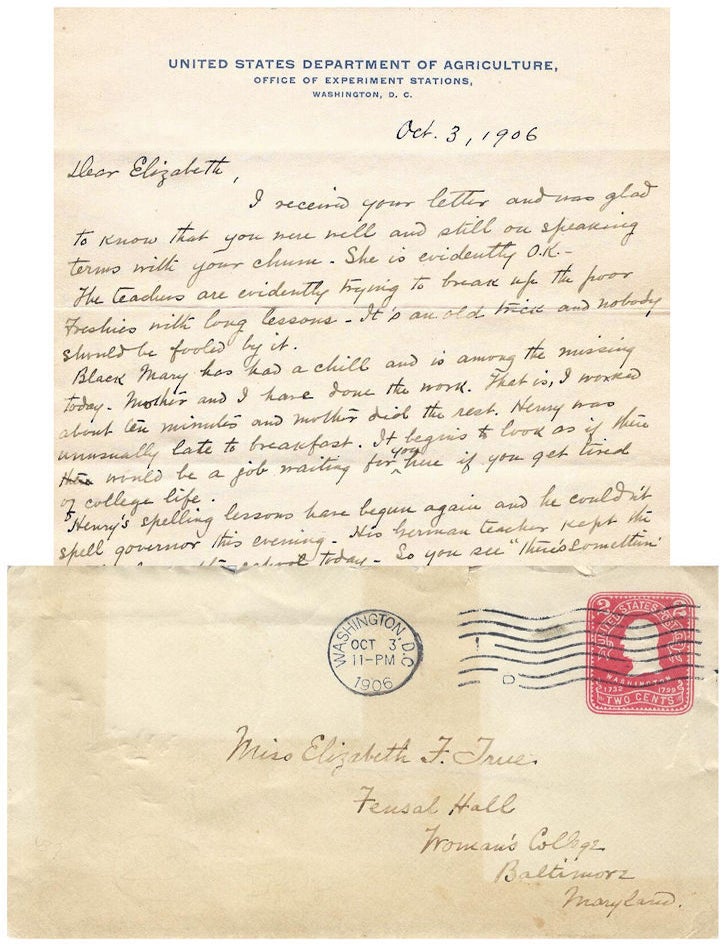 UNITED STATES DEPARTMENT OF AGRICULTURE,
OFFICE OF EXPERIMENT STATIONS,
WASHINGTON, D. C.
Oct. 3, 1906
Dear Elizabeth,
I received your letter and was glad
to know that you were well and still on speaking
terms with your chum - She is evidently O.K. -
The teachers are evidently trying to break up the poor
Freshies with long lessons - It's an old trick and nobody
should be fooled by it.
Black Mary has had a chill and is among the missing
today - Mother and I have done the work. That is, I worked
about ten minutes and mother did the rest. Henry was
unusually late to breakfast. It begins to look as if there
would be a job waiting for you here if you get tired
of college life.
Henry's spelling lessons have begun again and he couldn't
spell governor this evening - His German teacher kept the
school today - So you see "there's somethin'
WASHINGTON, D.C.
OCT 3
11-PM
1906
2 UNITED STATES POSTAGE 2
WASHINGTON
1732 1799
TWO CENTS
Miss Elizabeth F. True
Fensal Hall
Woman's College
Baltimore
Maryland.